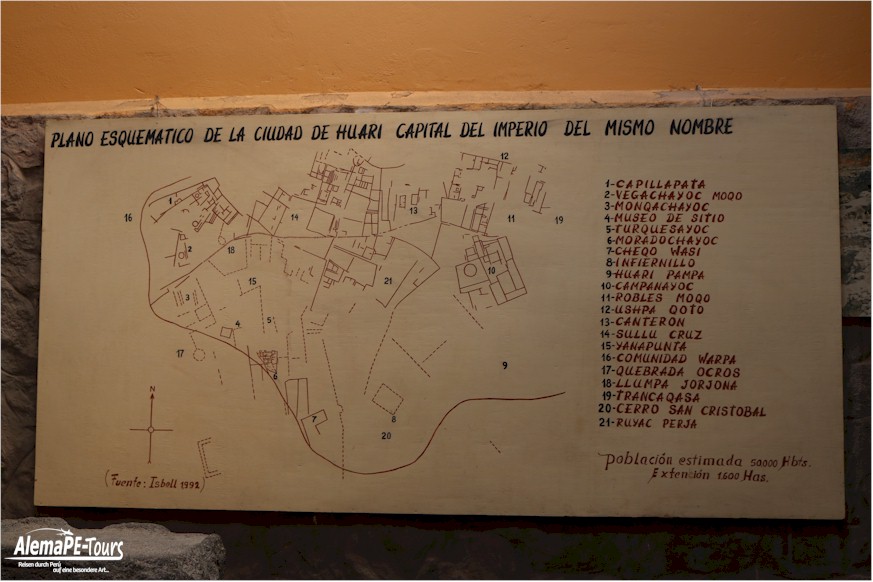 PLANO ESQUEMATICO DE LA CIUDAD DE HUARI CAPITAL DEL IMPERIO DEL MISMO NOMBRE
1-CAPILLAPATA
2-VEGACHAYOC MOQO
3-MONQACHAYOC
4-MUSEO DE SITIO
5-TURQUESAYOC
6-MORADOCHAYOC
7-CHEQO WASI
8-INFIERNILLO
9-HUARI PAMPA
10-CAMPANAYOC
11-ROBLES MOQO
12-USHPA QOTO
13-CANTERON
14-SULLU CRUZ
15-YANAPUNTA
16-COMUNIDAD WARPA
17-QUEBRADA OCROS
18-LLUMPA JORJONA
19-TRANCAQASA
20-CERRO SAN CRISTOBAL
21-RUYAC PERJA
Población estimada 50.000 Hbts.
Extención 1.600 Has.
12
1
16
14
13
11
19
2
18
15
21
10
3
5
4
17
6
9
7
8
20
N
(Fuente: Isbell 1992)
AlemaPE-Tours
Reisen durch Perú
auf eine besondere Art...